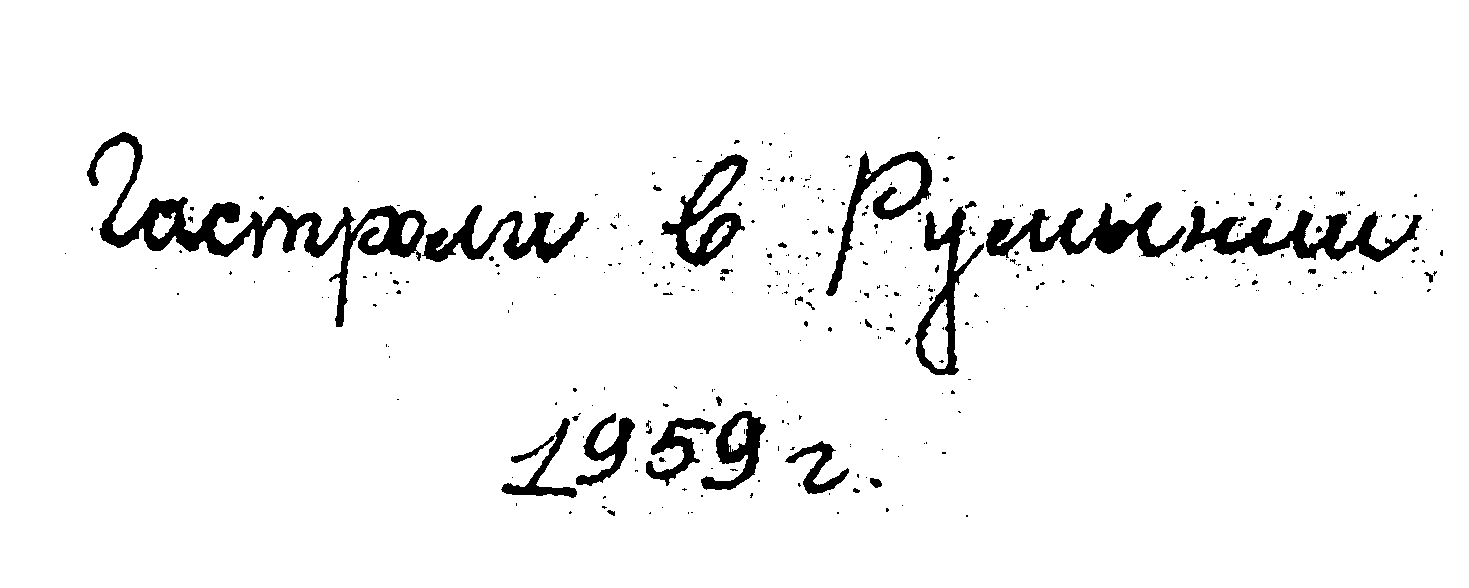 Гастроли в Румынии
1959 г.